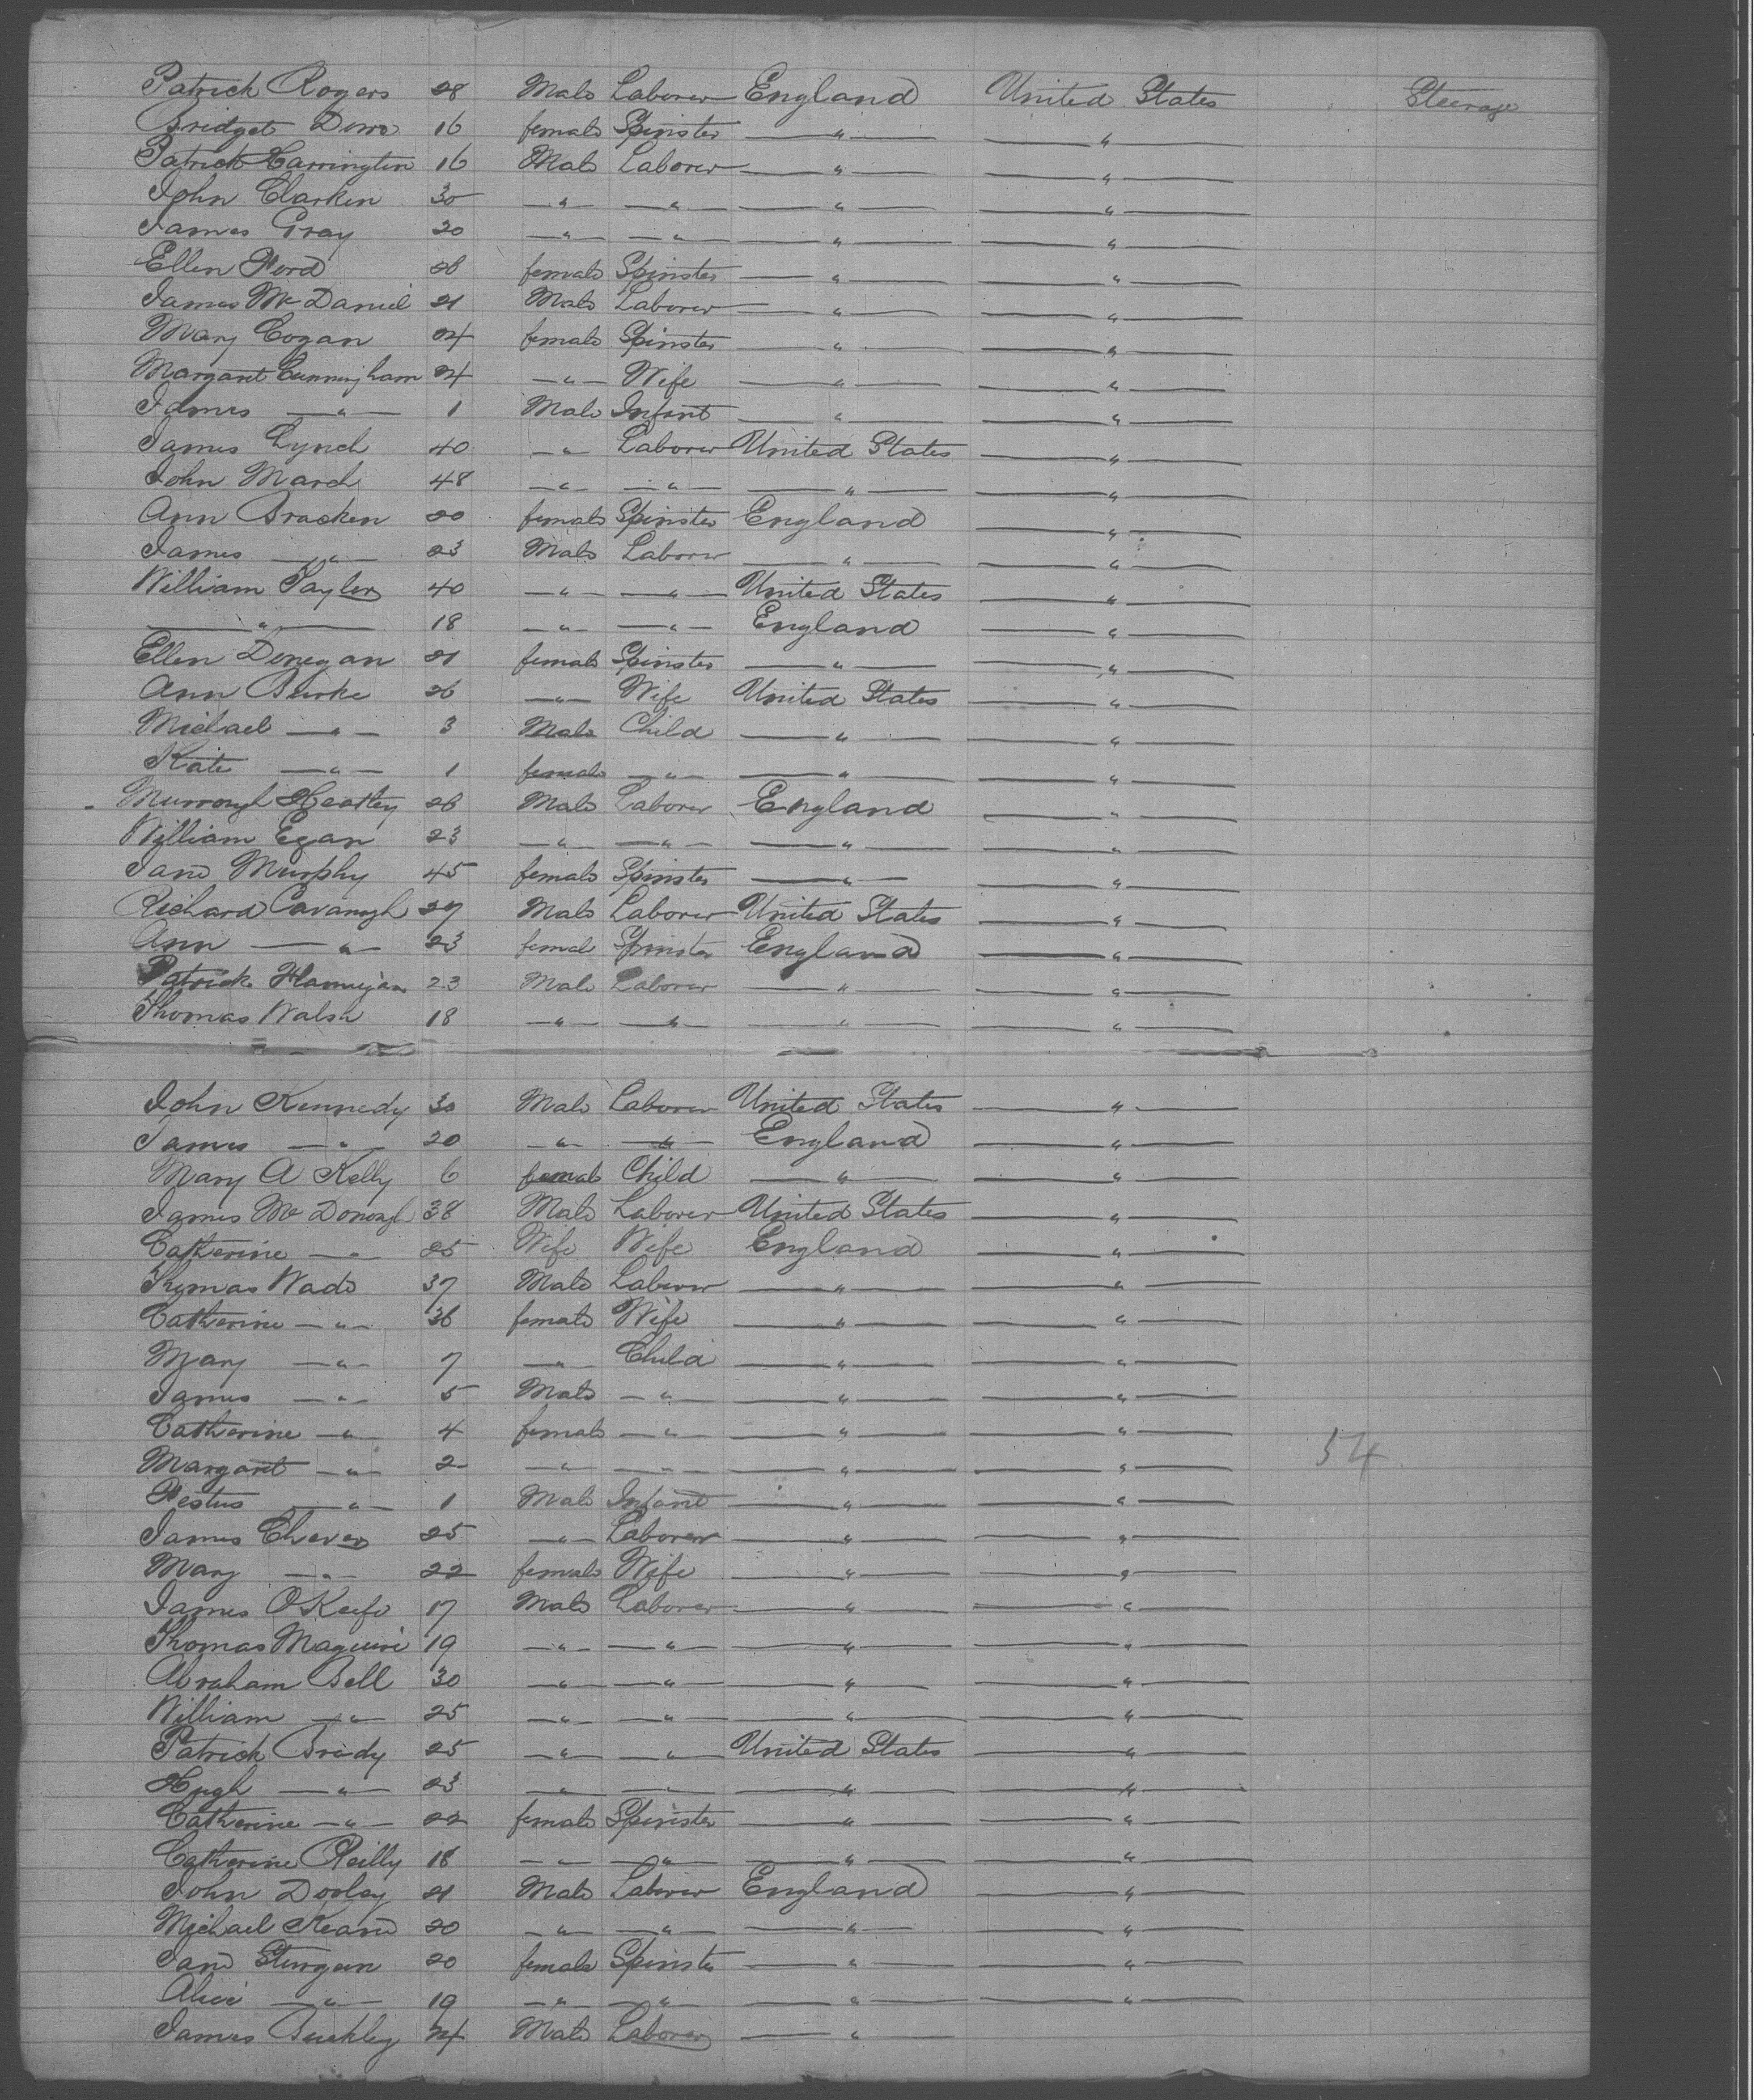 Patrick Rogers 28 Male Laborer England United States Steerage
Bridget 16 female Spinster — " — — " —
Patrick Harrington 16 Male Laborer — " — — " —
John Clarken 30 — " — — " — — " — — " —
James Gray 20 — " — — " — — " — — " —
Ellen Ford 28 female Spinster — " — — " —
James McDaniel 21 Male Laborer — " — — " —
Mary Cogan 24 female Spinster — " — — " —
Margaret Cunningham 24 — " — Wife — " — — " —
James — " — 1 Male Infant — " — — " —
James Lynch 40 — " — Laborer United States — " —
John Ward 48 — " — — " — — " — — " —
Ann Bracken 20 female Spinster England — " —
James — " — 23 Male Laborer — " — — " —
William Taylor 40 — " — — " — United States — " —
— " — 18 — " — — " — England — " —
Ellen Donegan 21 female Spinster — " — — " —
Ann Burke 26 — " — Wife United States — " —
Michael — " — 3 Male Child — " — — " —
Kate — " — 1 female — " — — " — — " —
Murrough Heatley 26 Male Laborer England — " —
William Egan 23 — " — — " — — " — — " —
Jane Murphy 45 female Spinster — " — — " —
Richard Cavanagh 27 Male Laborer United States — " —
Ann — " — 23 female Spinster England — " —
Patrick Hannigan 23 Male Laborer — " — — " —
Thomas Walsh 18 — " — — " — — " — — " —
John Kennedy 30 Male Laborer United States — " —
James — " — 20 — " — — " — England — " —
Mary A Kelly 6 female Child — " — — " —
James McDonough 38 Male Laborer United States — " —
Catherine — " — 25 Wife Wife England — " —
Thomas Wade 37 Male Laborer — " — — " —
Catherine — " — 36 female Wife — " — — " —
Mary — " — 7 — " — Child — " — — " —
James — " — 5 Male — " — — " — — " —
Catherine — " — 4 female — " — — " — — " —
Margaret — " — 2 — " — — " — — " — — " — 54
Festus — " — 1 Male Infant — " — — " —
James Chever 25 — " — Laborer — " — — " —
Mary — " — 22 female Wife — " — — " —
James O'Keefe 17 Male Laborer — " — — " —
Thomas Maguire 19 — " — — " — — " — — " —
Abraham Bell 30 — " — — " — — " — — " —
William — " — 25 — " — — " — — " — — " —
Patrick Brady 25 — " — — " — United States — " —
Hugh — " — 23 — " — — " — — " — — " —
Catherine — " — 22 female Spinster — " — — " —
Catherine Reilly 18 — " — — " — — " — — " —
John Dooley 21 Male Laborer England — " —
Michael Keane 20 — " — — " — — " — — " —
Jane Sturgeon 20 female Spinster — " — — " —
Alice — " — 19 — " — — " — — " — — " —
James Buckley 24 Male Laborer — " —